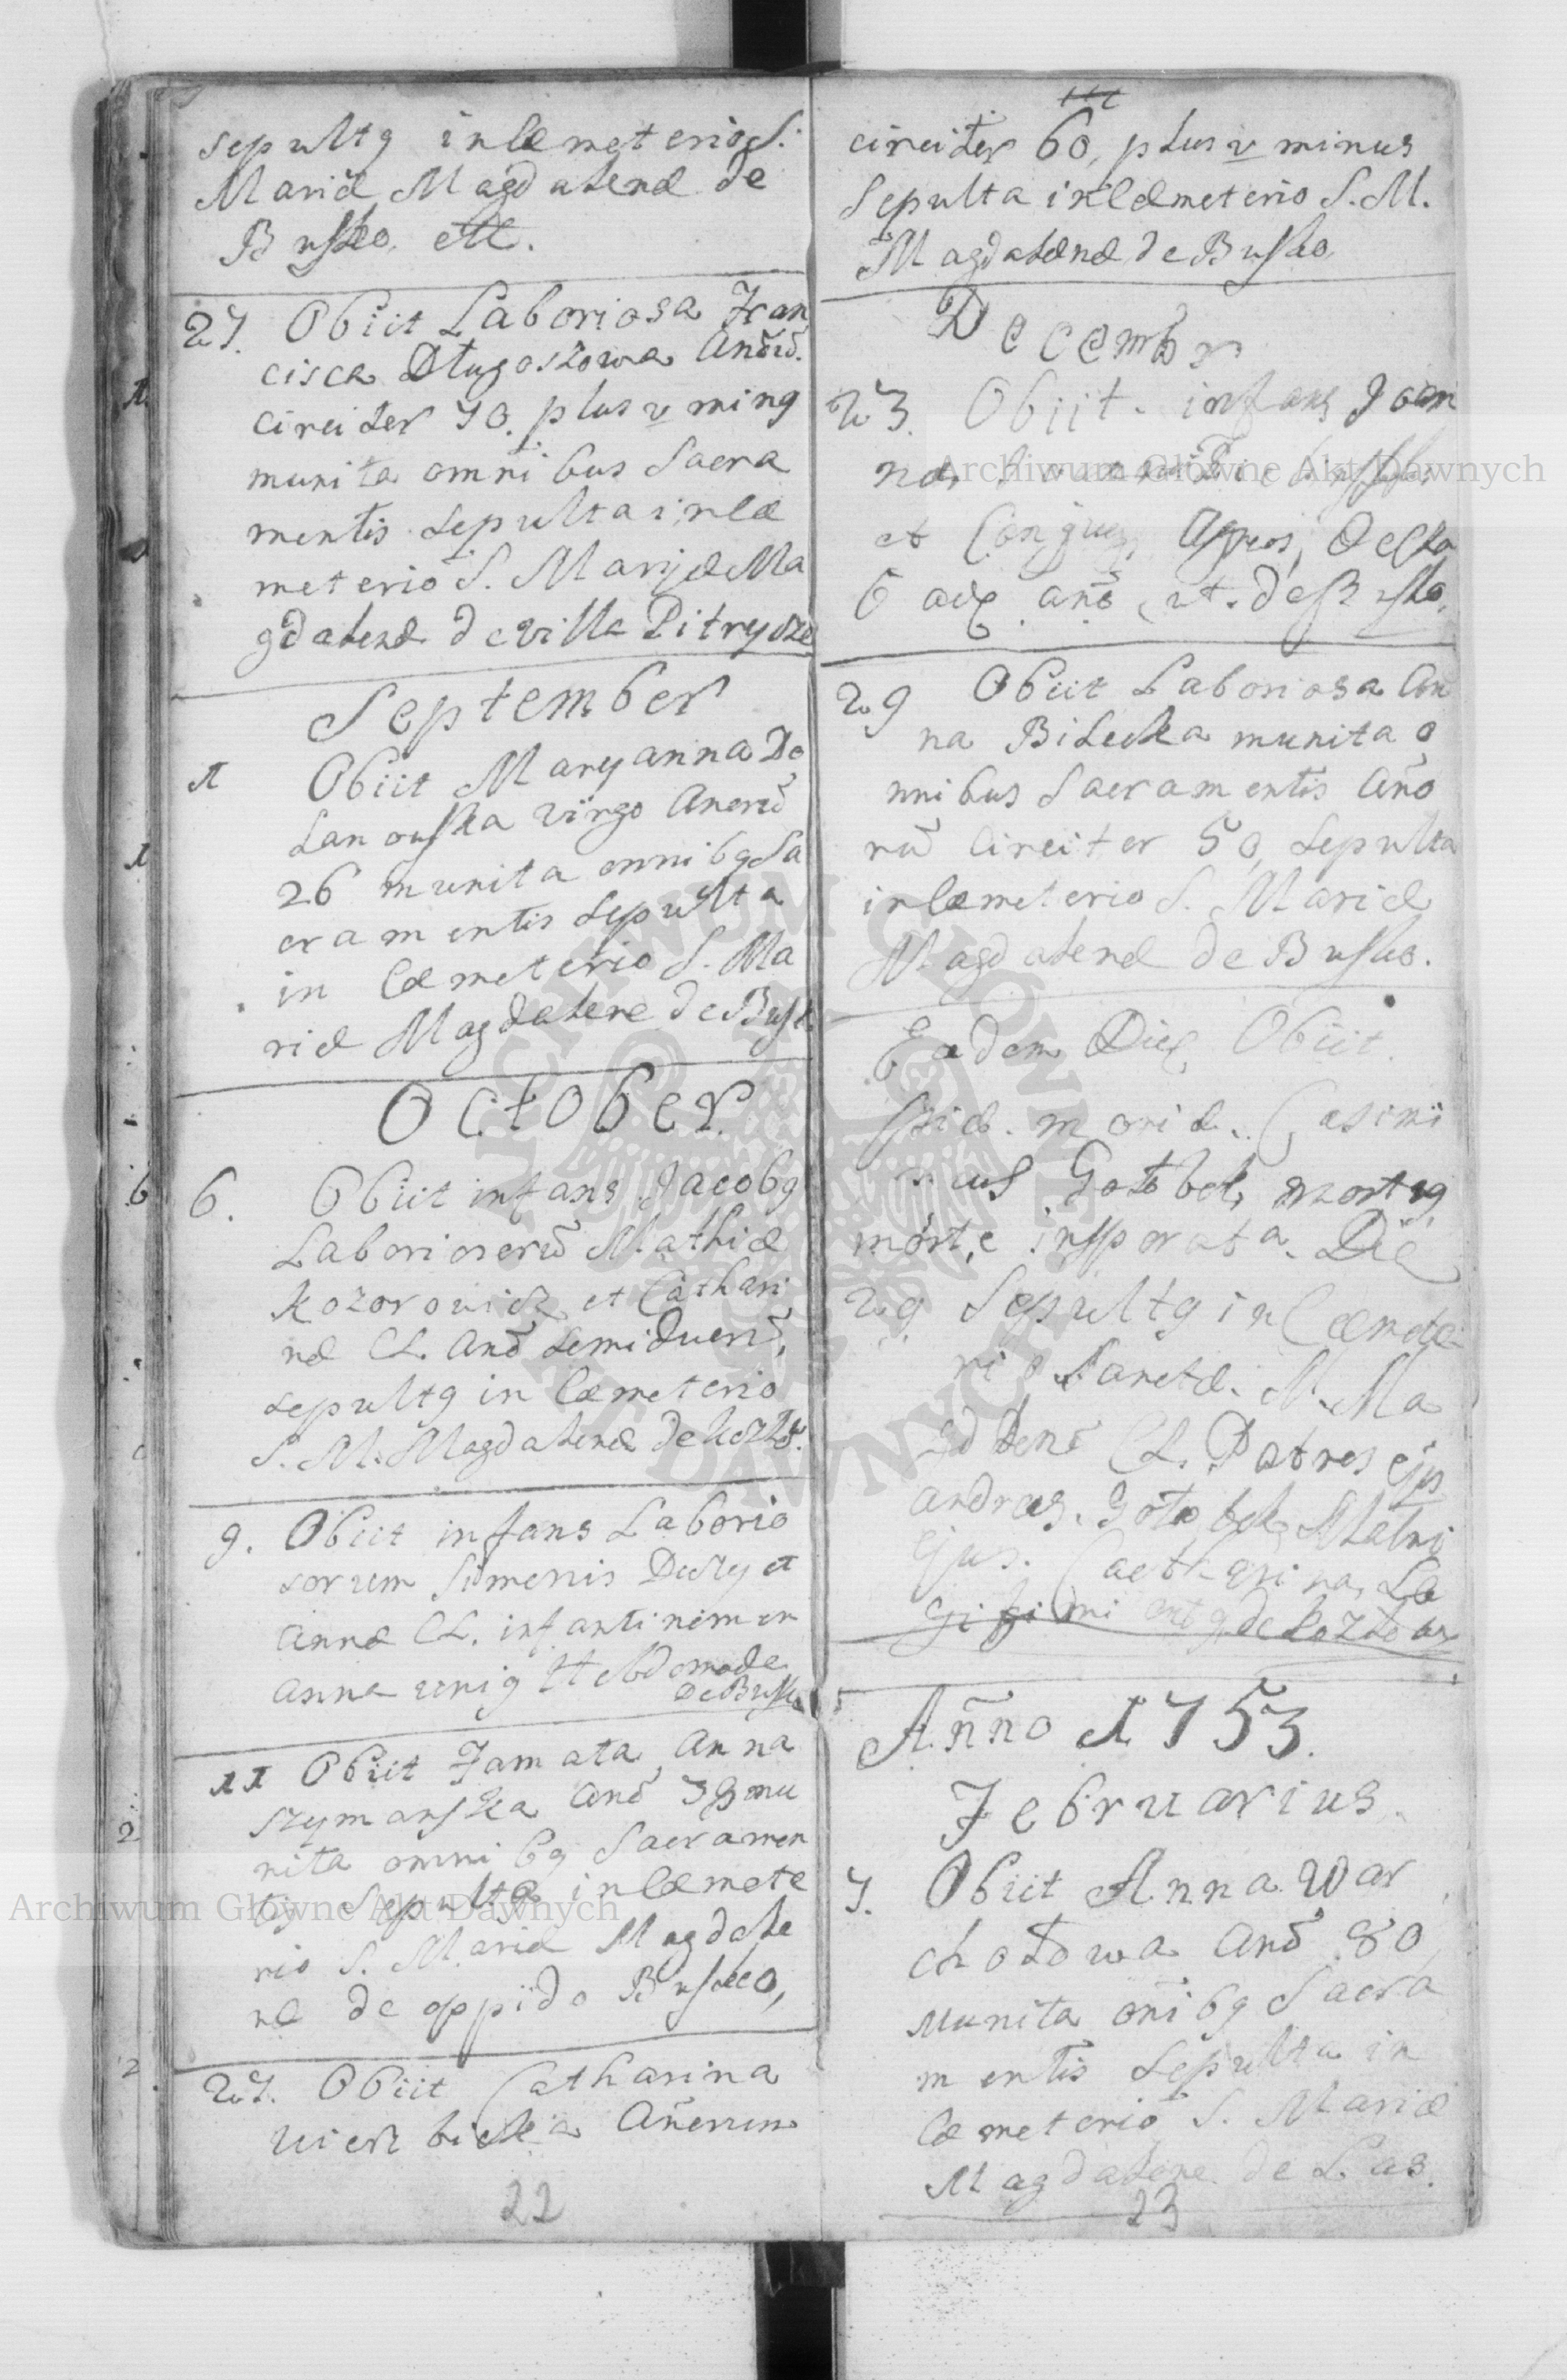 sepultq in Cæmeterio S.
Mariæ Magdalenæ de
Busko ett.
27. Obiit Laboriosa Fran
cisca Długoszowa Anõrũ.
circiter 70. plus v minq
munita omnibus Sacra
mentis Sepulta in Cæ
meterio S. Marijæ Ma
gdalenæ de villa Pitrycze
September
1 Obiit Maryanna Do
lanouska virgo Anorũ
26 munita omnibq Sa
cramentis Sepulta
in Cæmeterio S. Ma
riæ Magdalene de Busk
October
6. Obiit infans Jacobq
Laboriosorũ Mathiæ
Kozorowicz et Cathari
næ CL. Anõ Semiduerũ,
sepultq in Cæmeterio
S. M. Magdalenæ de Kozłõ.
9. Obiit infans Laborio
sorum Simenis Duczy et
Annæ CL. infanti nimen
Anna uniq Hebdomade
de Busk
11 Obiit Famata Anna
Szymanska Anõ 79 mu
nita omnibq Sacramen
tis Sepulta in Cæmete
rio S. Mariæ Magdale
næ de oppido Busko,
27. Obiit Catharina
Wierzbicka Añorum
22
circiter 60, plus v minus
Sepulta in Cæmeterio S. M.
Magdalænæ de Busko
Decembr
23. Obiit infans Joan
næ,
et Conjugis Agneos,
6 añõ ut. de Busko.
29 Obiit Laboriosa An
na Bilecka munita o
mnibus Sacramentis Año
rũ Circiter 50, Sepulta
in Cæmeterio S. Mariæ
Magdalenæ de Busko.
Eadem Die Obiit.
Casimi
rus Gołobek, mortuq
morte insperata. Die
29 Sepultq in Cæmete
rio Sanctæ. M. Ma
gdlenæ CL. Patres ejus
Andreas. Gołobek Matri
Ejus. Catherina, Le
gitimi de Kozłow
Añno 1753.
Februarius.
7. Obiit Anna War
chołowa Anõ 80,
Munita oñibq Sacra
mentis Sepulta in
Cæmeterio S. Mariæ
Magdalene de Las.
23
Archiwum Główne Akt Dawnych
Archiwum Główne Akt Dawnych
ARCHIWUM GŁÓWNE AKT DAWNYCH